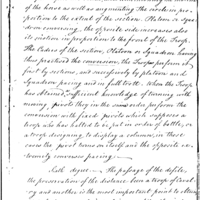 of the horse as well as augmenting the section in pro=
=portion to the extent of the section. Platoon or squa=
=dron conversing, the opposite side increases also
its motion in proportion to the front of the Troop.
The leaders of the section, Platoon or Squadron, having
thus practised the conversion, the Troop perform it
first by sections, and successively by platoon and
Squadron pacing and in full trott. When the Troop
has obtained sufficient knowledge of turning with
moving pivots they in the same order perform the
conversion with fixed pivots which supposes a
troop who has halted to be put in order of battle, or
a troop designing to display a column, in these
cases the pivot turns on itself and the opposite ex=
=tremity converses pacing
6th degree The passage of the defile,
the preservation of the distance from a troop of caval
ry and another is the most important point to attain